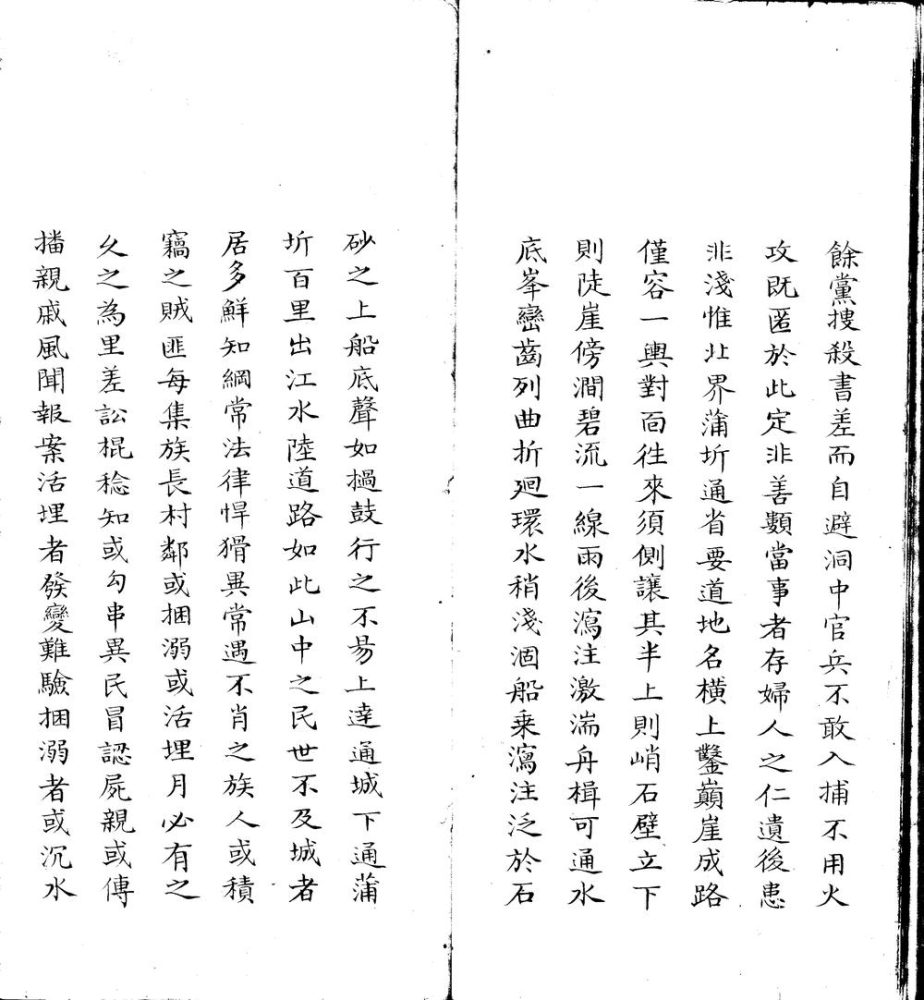 餘黨搜殺書差而自避洞中官兵不敢入捕不用火
攻既匿於此定非善類當事者存婦人之仁遺後患
非淺惟北界蒲圻通省要道地名橫上鑿巔崖成路
僅容一輿對面往來須側讓其半上則峭石壁立下
則陡崖傍澗碧流一線雨後瀉注激湍舟楫可通水
底峯巒齒列曲折廻環水稍淺涸船乗瀉注泛於石
砂之上船底聲如撾鼓行之不昜上達通城下通蒲
圻百里出江水陸道路如此山中之民世不及城者
居多鮮知綱常法律悍猾異常遇不肖之族人或積
竊之賊匪每集族長村鄰或捆溺或活埋月必有之
久之為里差訟棍稔知或勾串異民冒認屍親或傳
播親戚風聞報案活埋者發變難驗捆溺者或沉水